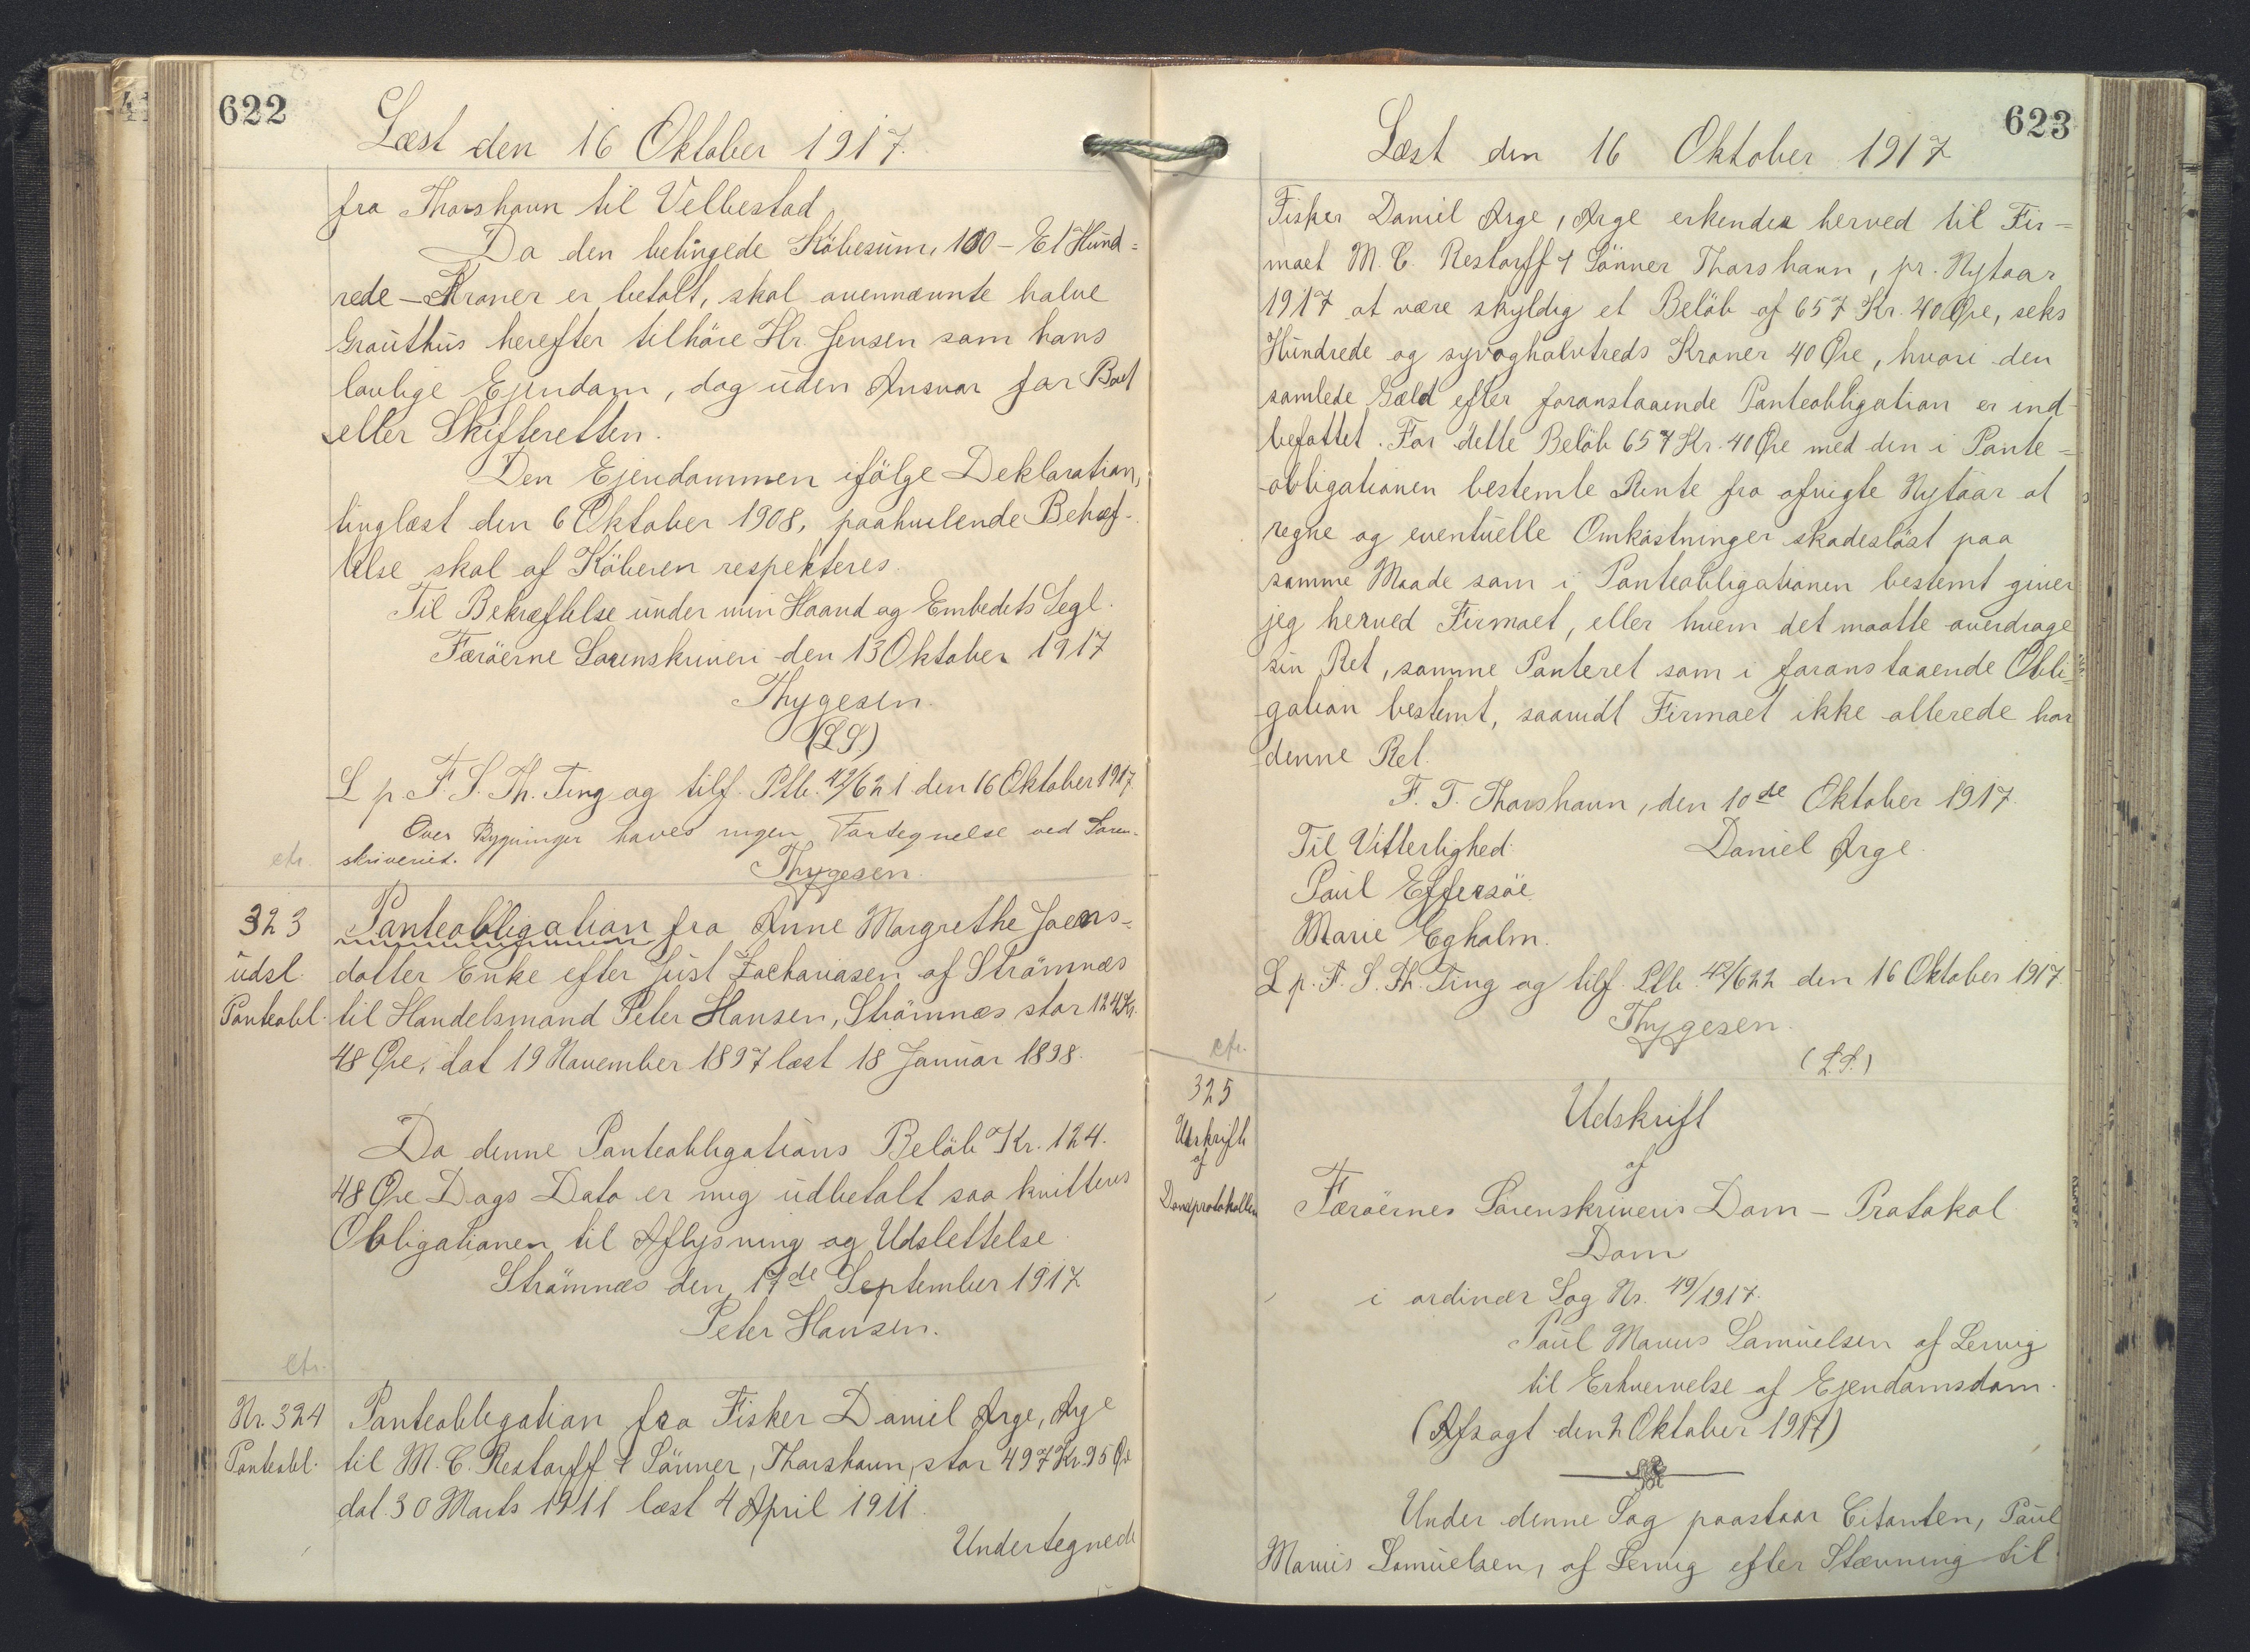 622
Læst den 16 Oktober 1917.
fra Thorshavn til Velbestad.
Da den betingede Köbesum, 100 – Et Hund=
rede – Kroner er betalt, skal ovennævnte halve
Grouthus herefter tilhöre Hr. Jensen som hans
lovlige Ejendom, dog uden Ansvar for Boet
eller Skifteretten.
Den Ejendommen ifölge Deklaration,
tinglæst den 6 Oktober 1908, paahvilende Behæf-
telse skal af Köberen respekteres.
Til Bekræftelse under min Haand og Embedets Segl.
Færöerne Sorenskriveri den 13 Oktober 1917
Thygesen.
(L S)
L p. F. S. Th. Ting og tilf. Ptb. 42/621 den 16 Oktober 1917.
Over Bygninger haves ingen Fortegnelse ved Soren-
skriveriet.
Thygesen.
ctr.
323
udsl.
Panteobl.
Panteobligation fra Anne Margrethe Joens-
datter Enke efter Just Zachariasen af Strömnæs
til Handelsmand Peter Hansen, Strömnæs stor 124 Kr.
48 Øre, dat 19 November 1897 læst 18 Januar 1898.
Da denne Panteobligations Belöb Kr. 124.
48 Øre Dags Dato er mig udbetalt saa kvitteres
Obligationen til Aflysning og Udslettelse.
Strömnæs den 17de September 1917
Peter Hansen.
ctr.
Nr. 324
Panteobl.
Panteobligation fra Fisker Daniel Arge, Arge
til M. C. Restorff & Sönner, Thorshavn, stor 497 Kr. 95 Ør
dat 30 Marts 1911 læst 4 April 1911.
Undertegnede
623
Læst den 16 Oktober 1917
Fisker Daniel Arge, Arge erkender herved til Fir=
maet M. C. Restorff & Sönner Thorshavn, pr. Nytaar
1917 at være skyldig et Belöb af 657 Kr. 40 Øre, seks
Hundrede og syvoghalvtreds Kroner 40 Øre, hvori den
samlede Gæld efter foranstaaende Panteobligation er ind-
befattet. For dette Belöb 657 Kr. 40 Øre med den i Pante=
obligationen bestemte Rente fra afvigte Nytaar at
regne og eventuelle Omkostninger skadeslöst paa
samme Maade som i Panteobligationen bestemt giver
jeg herved Firmaet, eller hvem det maatte overdrage
sin Ret, samme Panteret som i foranstaaende Obli=
gation bestemt, saavidt Firmaet ikke allerede har
denne Ret.
F. T. Thorshavn, den 10de Oktober 1917.
Til Vitterlighed: Daniel Arge.
Paul Effersöe.
Marie Egholm.
L p. F. S. Th. Ting og tilf. Ptb. 42/622 den 16 Oktober 1917.
Thygesen.
(L S.)
ctr.
325
Udskrift
af
Domsprotokollen
Udskrift
af
Færöernes Sorenskriveris Dom – Protokol
Dom
i ordinær Sag Nr. 49/1917.
Paul Marius Samuelsen af Lervig
til Erhvervelse af Ejendomsdom.
(Afsagt den 2 Oktober 1917)
Under denne Sag paastaar Citanten, Paul
Marius Samuelsen, af Lervig efter Stævning til